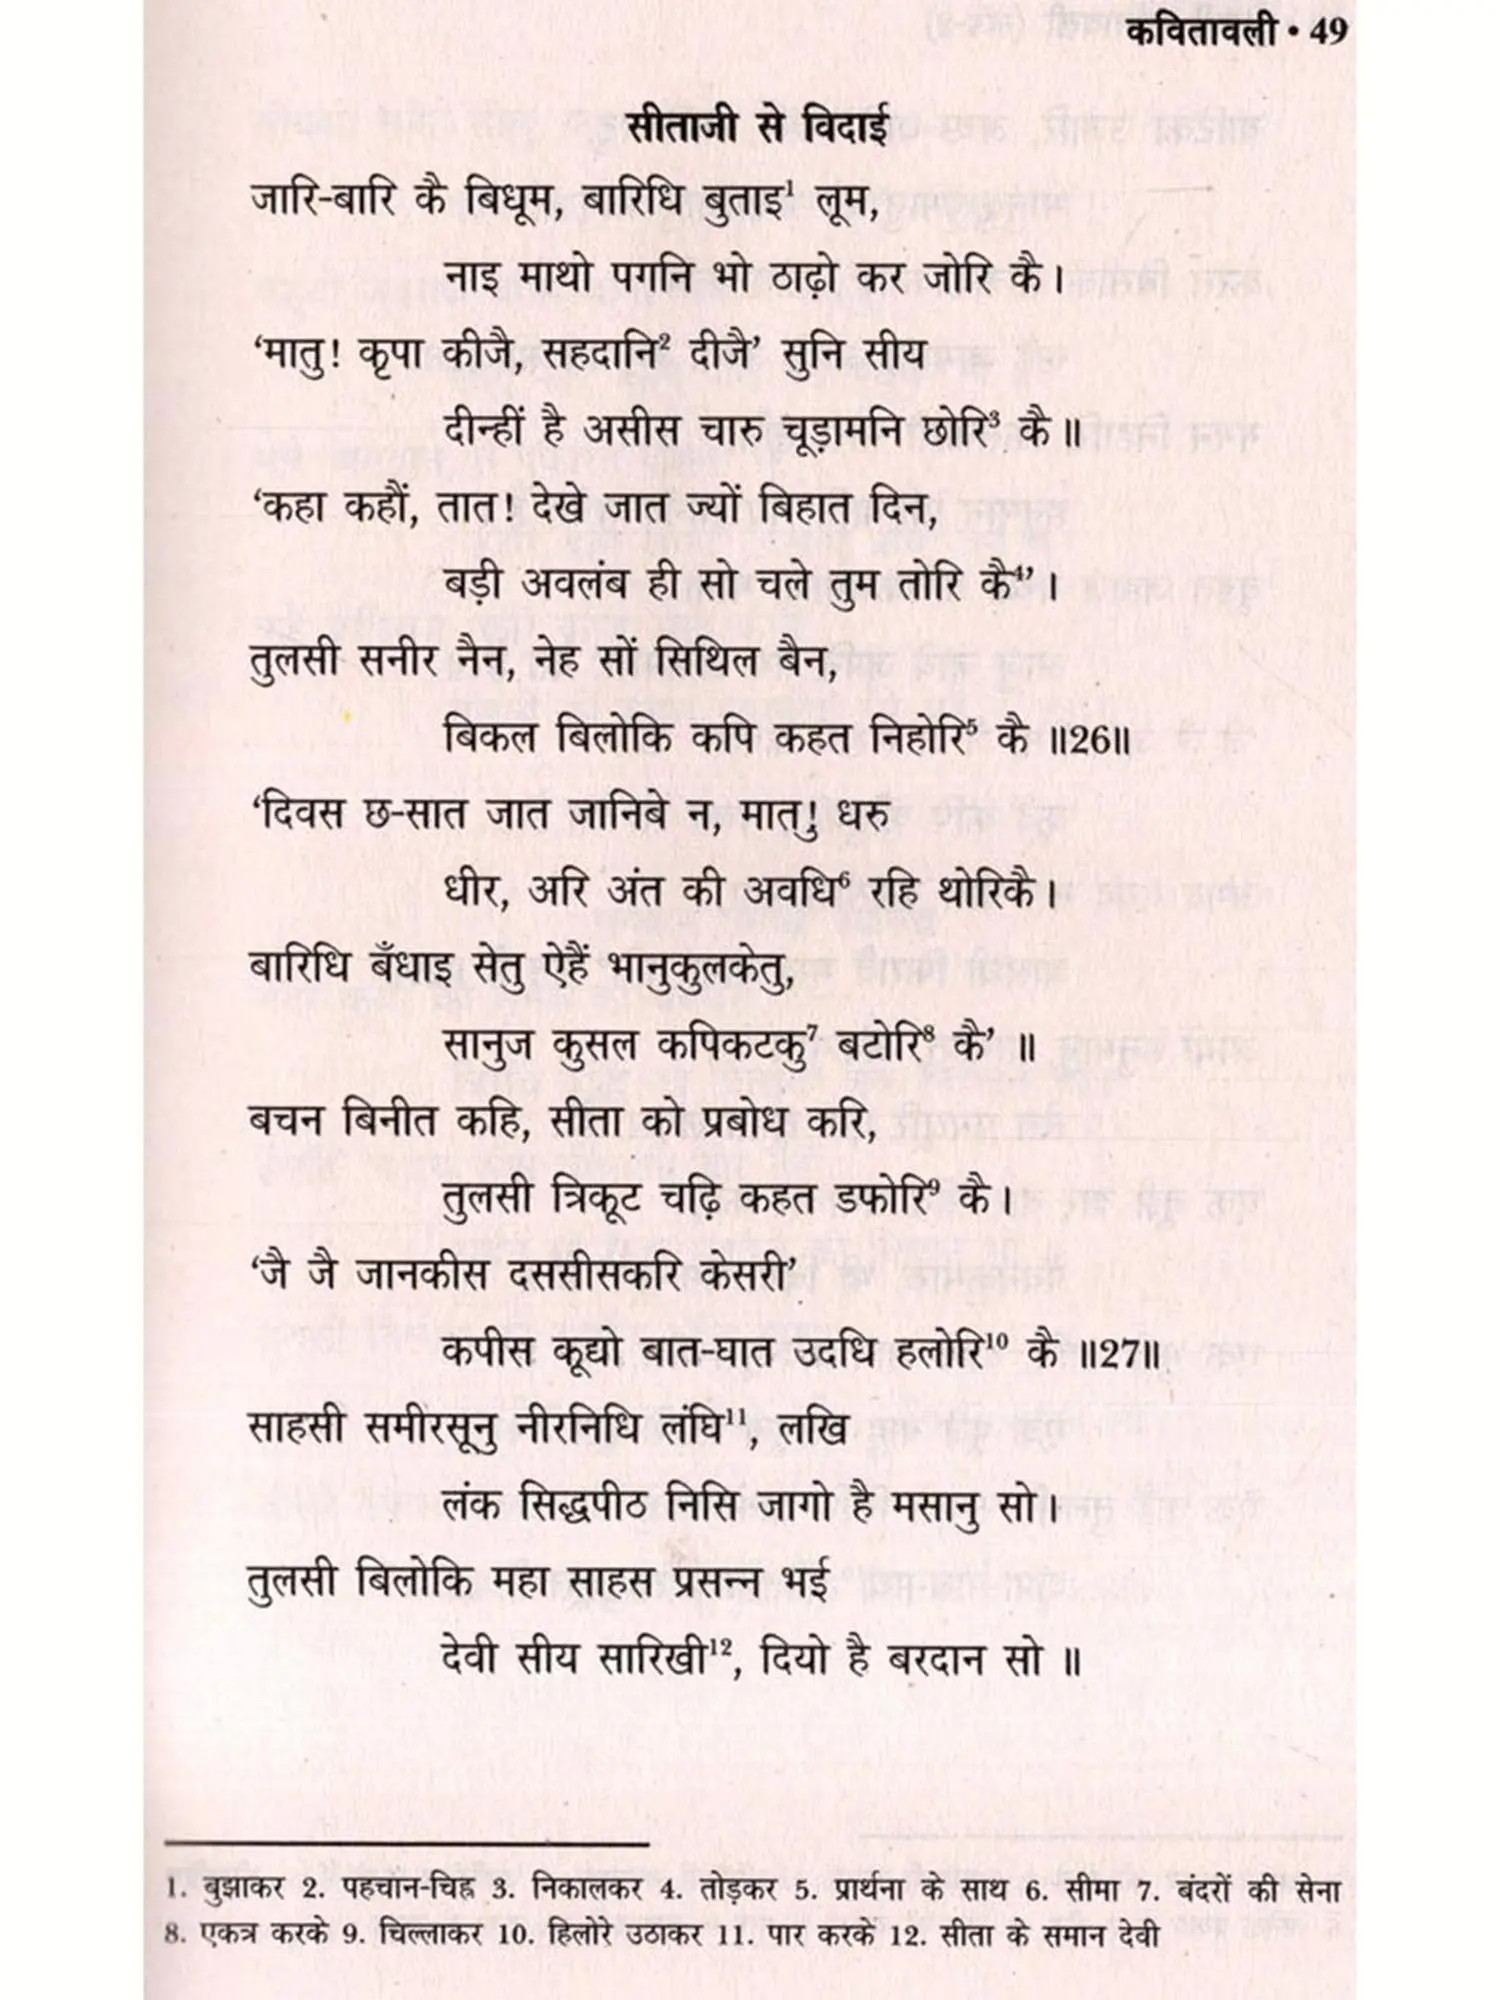 कवितावली • 49
सीताजी से विदाई
जारि-बारि कै बिधूम, बारिधि बुताइ¹ लूम,
नाइ माथो पगनि भो ठाढ़ो कर जोरि कै।
‘मातु! कृपा कीजै, सहदानि² दीजै’ सुनि सीय
दीन्हीं है असीस चारु चूड़ामनि छोरि³ कै॥
‘कहा कहौं, तात! देखे जात ज्यों बिहात दिन,
बड़ी अवलंब ही सो चले तुम तोरि कै⁴’।
तुलसी सनीर नैन, नेह सों सिथिल बैन,
बिकल बिलोकि कपि कहत निहोरि⁵ कै॥26॥
‘दिवस छ-सात जात जानिबे न, मातु! धरु
धीर, अरि अंत की अवधि⁶ रहि थोरिकै।
बारिधि बँधाइ सेतु ऐहैं भानुकुलकेतु,
सानुज कुसल कपिकटकु⁷ बटोरि⁸ कै’॥
बचन बिनीत कहि, सीता को प्रबोध करि,
तुलसी त्रिकूट चढ़ि कहत डफोरि⁹ कै।
‘जै जै जानकीस दससीसकरि केसरी’
कपीस कूद्यो बात-घात उदधि हलोरि¹⁰ कै॥27॥
साहसी समीरसूनु नीरनिधि लंघि¹¹, लखि
लंक सिद्धपीठ निसि जागो है मसानु सो।
तुलसी बिलोकि महा साहस प्रसन्न भई
देवी सीय सारिखी¹², दियो है बरदान सो॥
1. बुझाकर 2. पहचान-चिह्न 3. निकालकर 4. तोड़कर 5. प्रार्थना के साथ 6. सीमा 7. बंदरों की सेना
8. एकत्र करके 9. चिल्लाकर 10. हिलोरे उठाकर 11. पार करके 12. सीता के समान देवी